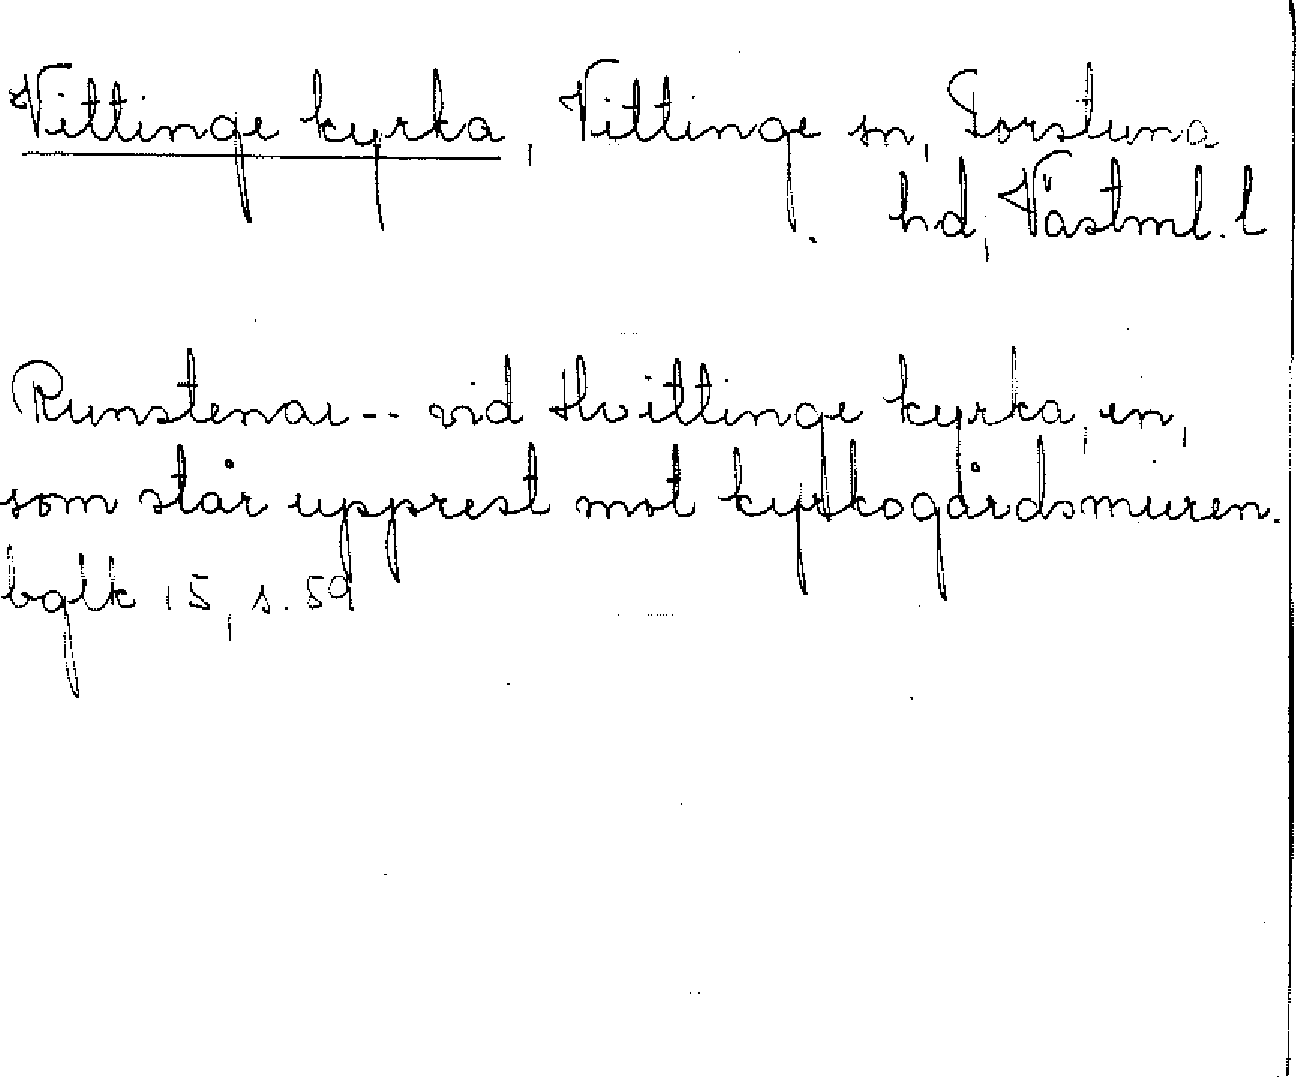 Vittinge kyrka, Vittinge sn, Torstuna
hd, Västml. l
Runstenar -- vid Hvittinge kyrka, en,
som står upprest mot kyrkogårdsmuren.
bglk 15, s. 59